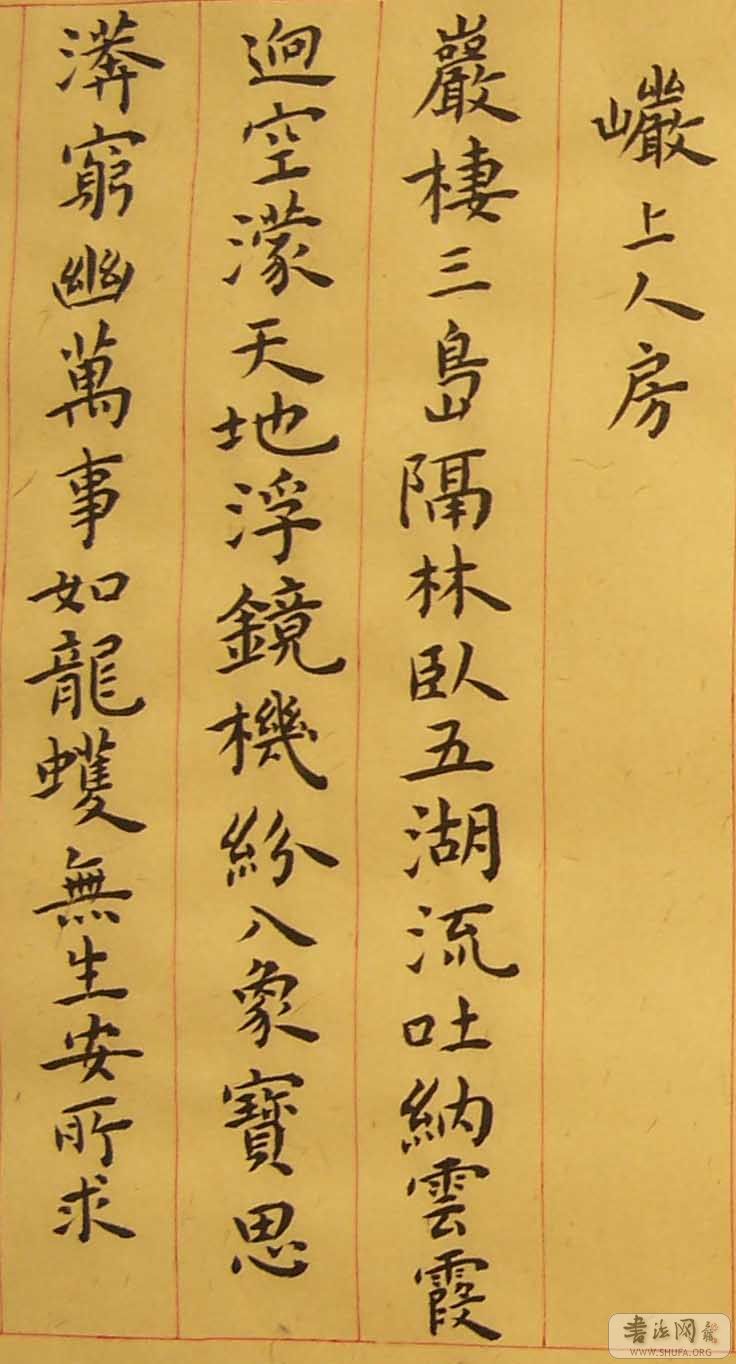 巗上人房
巖棲三島隔林臥五湖流吐納雲霞
逈空濛天地浮鏡機紛入象寶思
漭窮幽萬事如龍蠖無生安所求
書法网
WWW.SHUFA.ORG